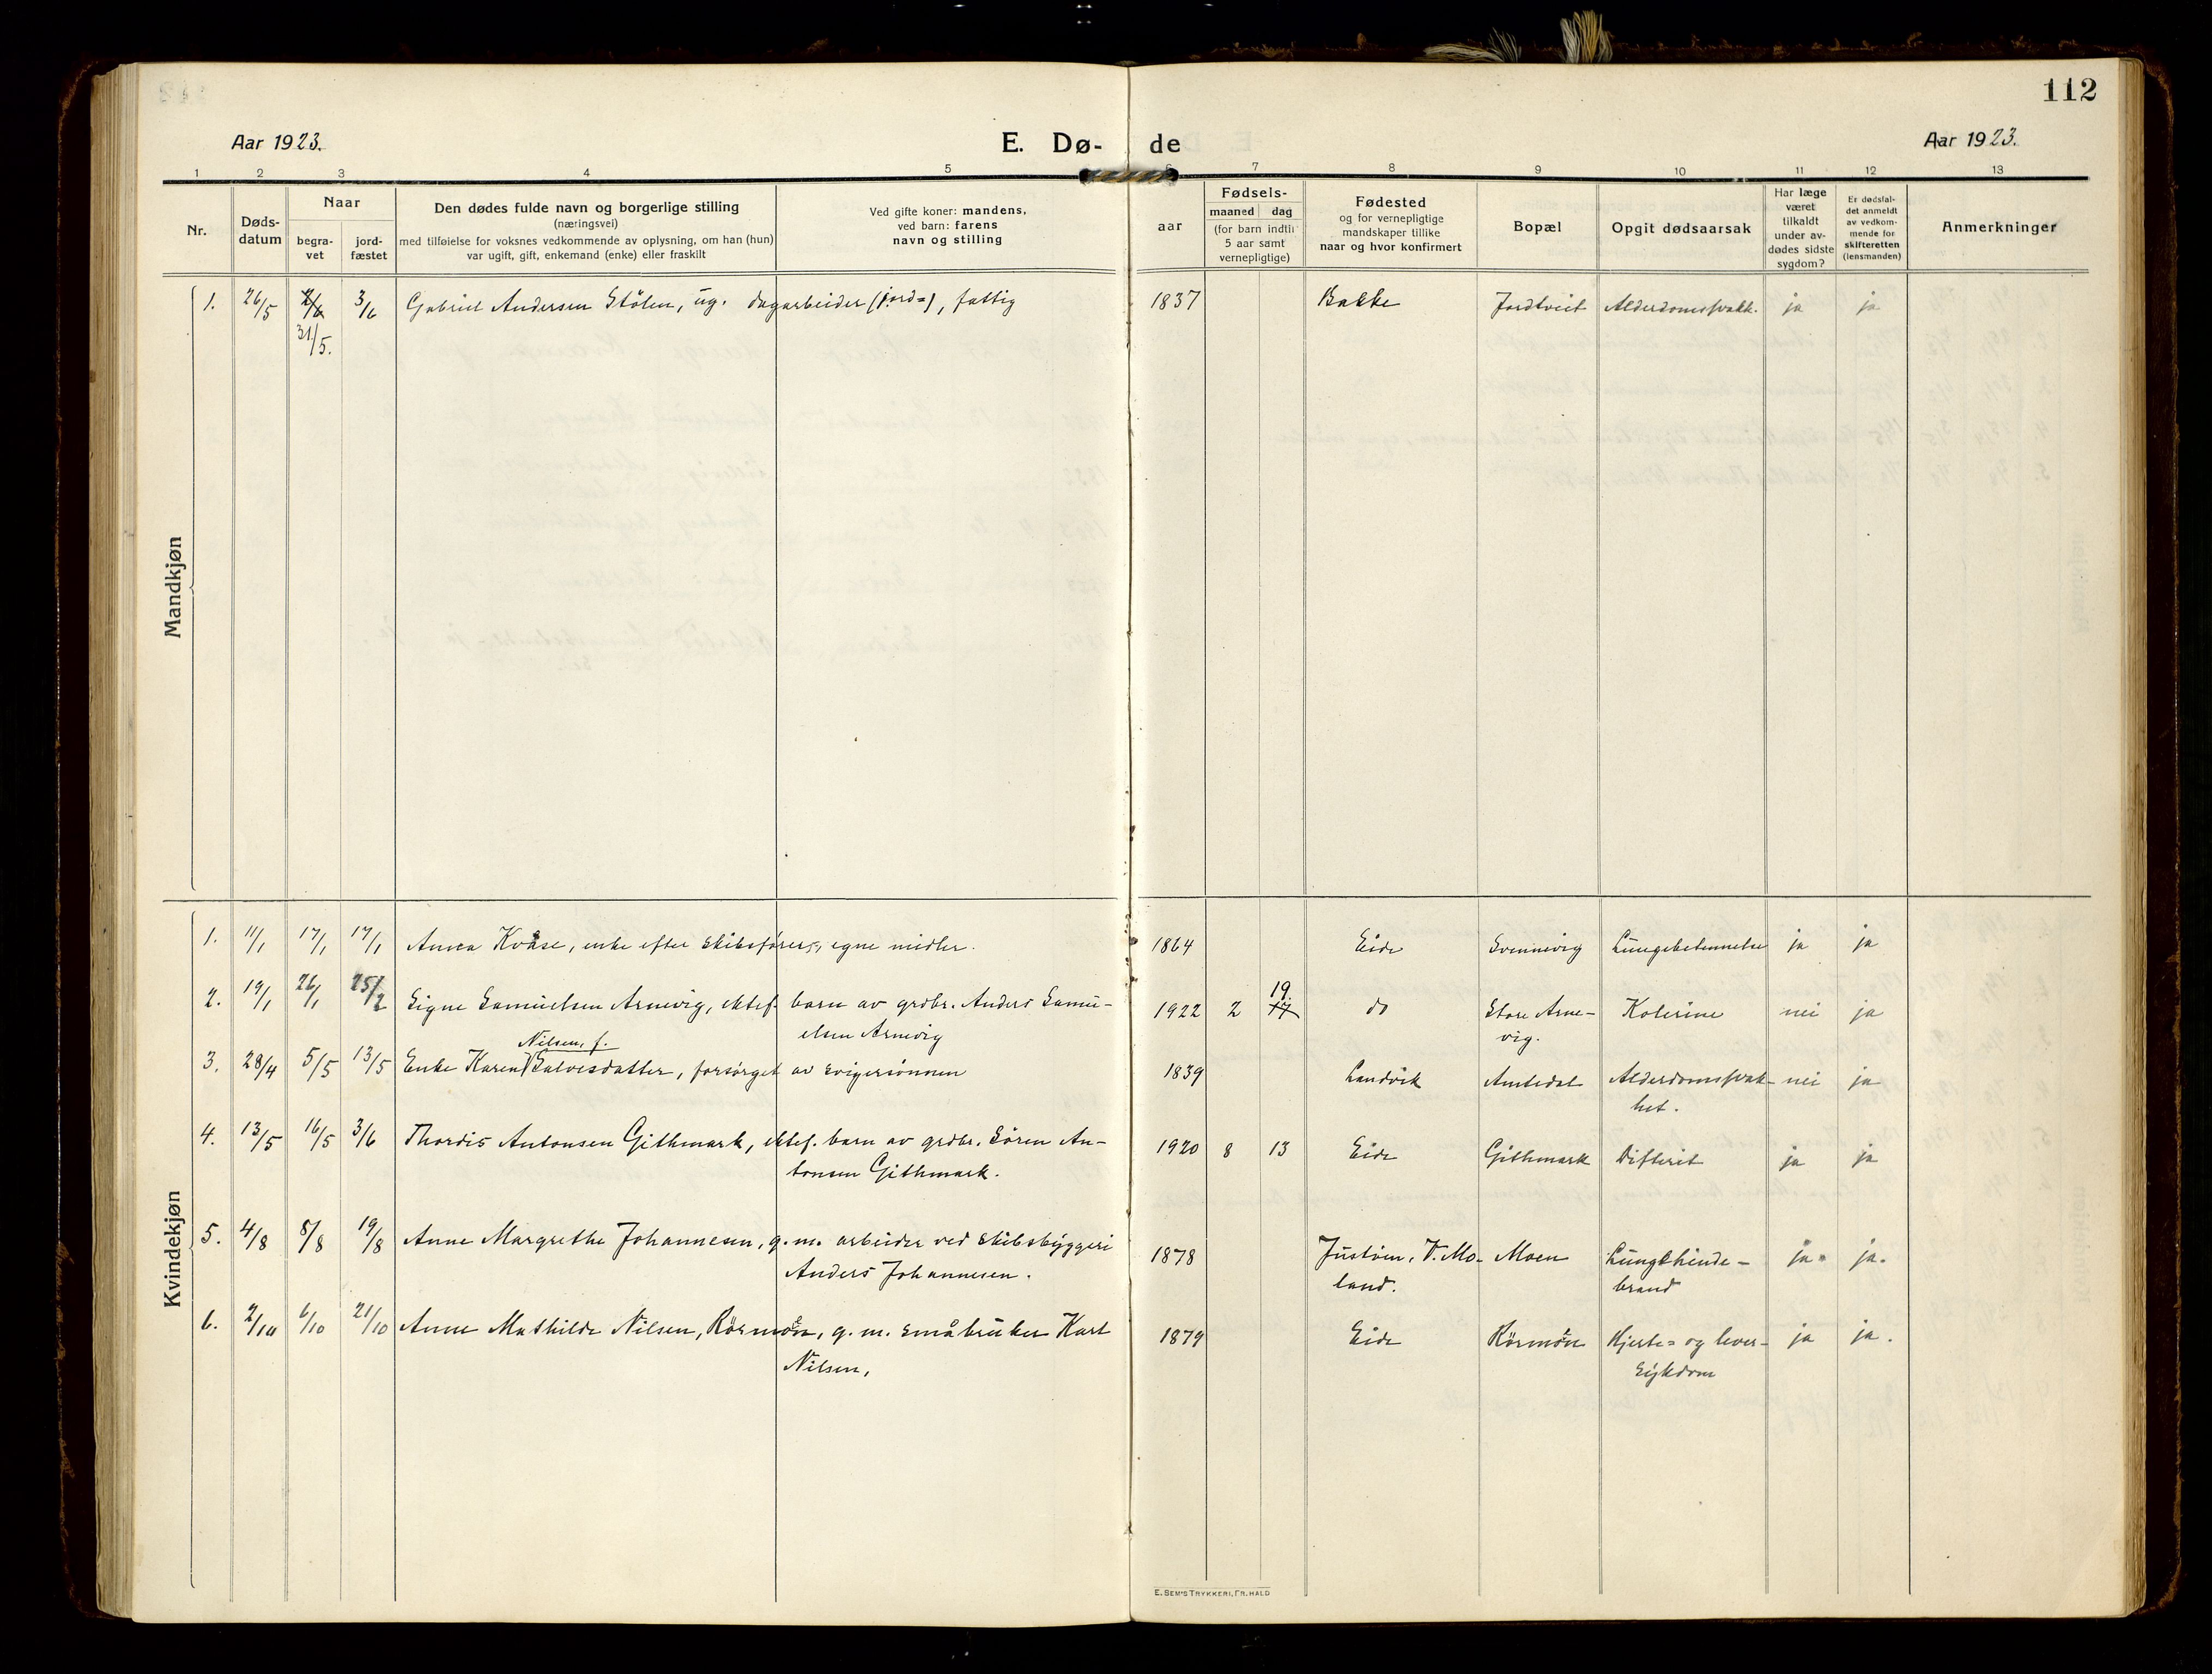 112
Aar 1923.
E. Dø- de
Aar 1923.
1 2 3 4 5 6 7 8 9 10 11 12 13
Nr.
Døds-
datum
Naar
begra-
vet
jord-
fæstet
Den dødes fulde navn og borgerlige stilling
(næringsvei)
med tilføielse for voksnes vedkommende av oplysning, om han (hun)
var ugift, gift, enkemand (enke) eller fraskilt
Ved gifte koner: mandens,
ved barn: farens
navn og stilling
Fødsels-
aar
maaned dag
(for barn indtil
5 aar samt
vernepligtige)
Fødested
og for vernepligtige
mandskaper tillike
naar og hvor konfirmert
Bopæl
Opgit dødsaarsak
Har læge
været
tilkaldt
under av-
dødes sidste
sygdom?
Er dødsfal-
det anmeldt
av vedkom-
mende for
skifteretten
(lensmanden)
Anmerkninger
Mandkjøn
1. 26/5 2/6 3/6 Gabriel Andersen Stölen, ug. dagarbeider (jord=), fattig 1837 Bakke Jordtveit Alderdomssvakk. ja ja
31/5.
Kvindekjøn
1. 11/1 17/1 17/1 Anna Kvåse, enke efter skibsförer, egne midler. 1864 Eide Svennevig Lungebetennelse ja ja
2. 19/1 26/1 25/2 Signe Samuelsen Arnevig, ektef. barn av grdbr. Anders Samu- 1922 2 17 19 do Store Arne- Kolerine nei ja
elsen Arnevig vig.
Nilsen, f.
3. 28/4 5/5 13/5 Enke Karen Salvesdatter, forsörget av svigersönnen 1839 Landvik Amtedal Alderdomssvak- nei ja
het.
4. 13/5 16/5 3/6 Thordis Antonsen Githmark, ektef. barn av grdbr. Sören An- 1920 8 13 Eide Githmark Difterit ja ja
tonsen Githmark.
5. 4/8 8/8 19/8 Anne Margrethe Johannesen, g. m. arbeider ved skibsbyggeri 1878 Justöen, V. Mo- Moen Lungehinde- ja ja.
Anders Johannesen. land. brand
6. 2/10 6/10 21/10 Anne Mathilde Nilsen, Rörmoen, g. m. småbruker Karl 1879 Eide Rörmoen Hjerte= og lever- ja ja.
Nilsen, sykdom
E. SEM'S TRYKKERI, FR.HALD